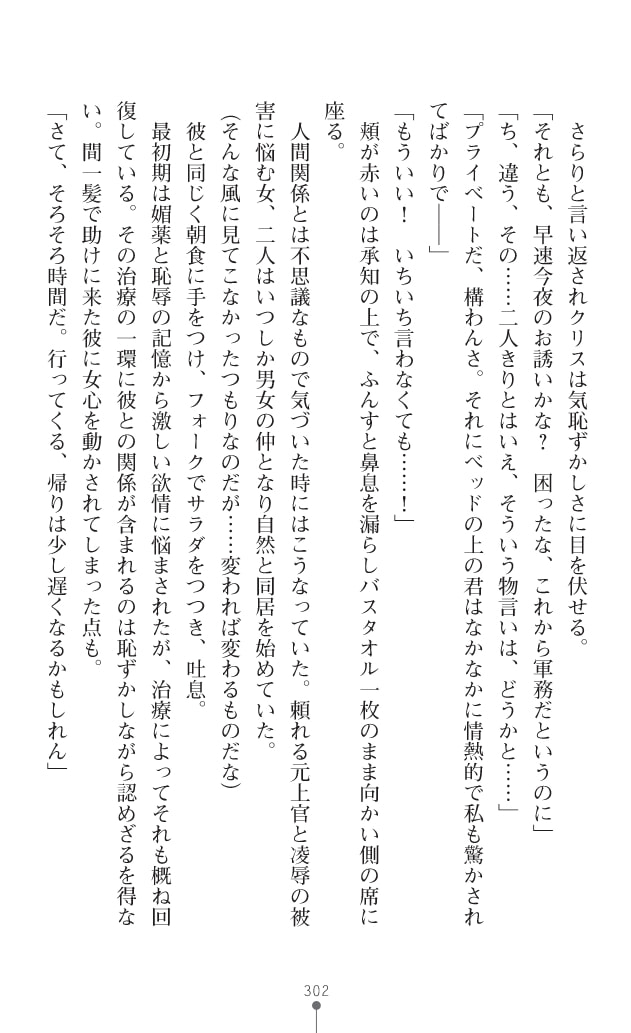 さらりと言い返されクリスは気恥ずかしさに目を伏せる。
「それとも、早速今夜のお誘いかな？　困ったな、これから軍務だというのに」
「ち、違う、その……二人きりとはいえ、そういう物言いは、どうかと……」
「プライベートだ、構わんさ。それにベッドの上の君はなかなかに情熱的で私も驚かされ
てばかりで――」
「もういい！　いちいち言わなくても……！」
頬が赤いのは承知の上で、ふんすと鼻息を漏らしバスタオル一枚のまま向かい側の席に
座る。
人間関係とは不思議なもので気づいた時にはこうなっていた。頼れる元上官と凌辱の被
害に悩む女、二人はいつしか男女の仲となり自然と同居を始めていた。
（そんな風に見てこなかったつもりなのだが……変われば変わるものだな）
彼と同じく朝食に手をつけ、フォークでサラダをつつき、吐息。
最初期は媚薬と恥辱の記憶から激しい欲情に悩まされたが、治療によってそれも概ね回
復している。その治療の一環に彼との関係が含まれるのは恥ずかしながら認めざるを得な
い。間一髪で助けに来た彼に女心を動かされてしまった点も。
「さて、そろそろ時間だ。行ってくる、帰りは少し遅くなるかもしれん」
302